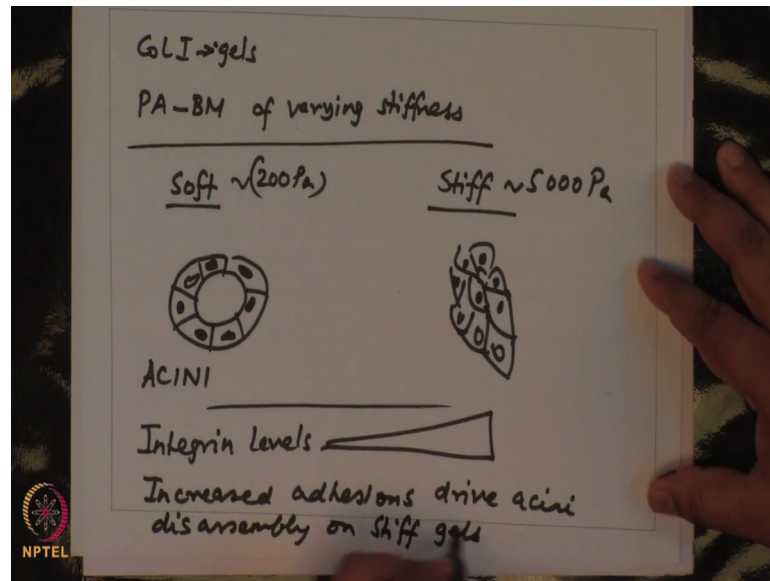 ColI → gels
PA-BM of varying stiffness
Soft ~(200Pa)
Stiff ~5000Pa
ACINI
Integrin Levels
Increased adhesions drive acini
disassembly on stiff gels
NPTEL